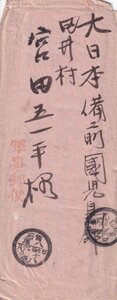 大日本備前國児島郡
田井村
宮田五一平様
軍事郵便